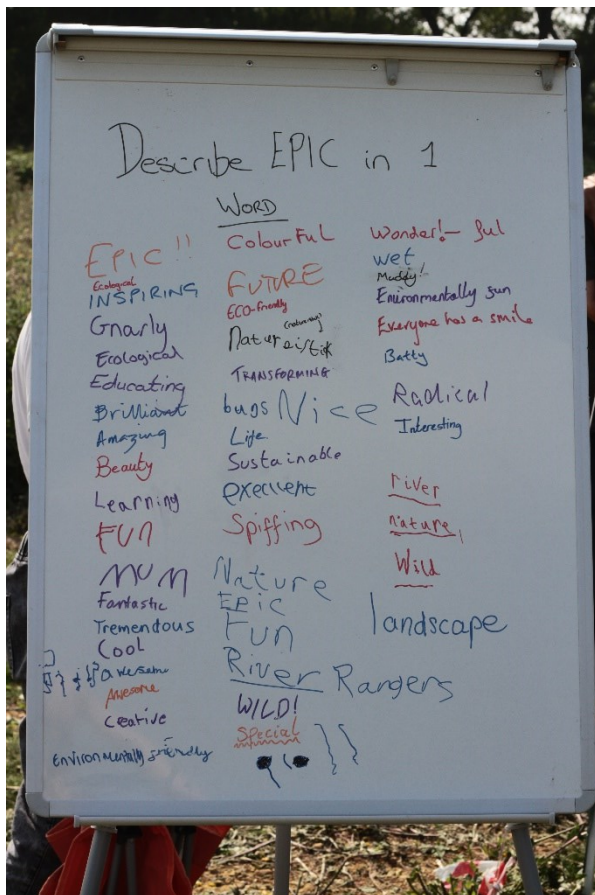 Describe EPIC in 1
WORD
EPIC!!
Ecological
INSPIRING
Gnarly
Ecological
Educating
Brilliant
Amazing
Beauty
Learning
FUN
MUM
Fantastic
Tremendous
Cool
awesome
Awesome
Creative
Environmentally friendly
Colourful
FUTURE
ECO-friendly
Natureistic
TRANSFORMING
bugs Nice
Life
Sustainable
execlent
Spiffing
Nature
Epic
Fun
River Rangers
WILD!
Special
Wonder!-ful
wet
Muddy!
Environmentally fun
Everyone has a smile
Batty
Radical
Interesting
river
nature
Wild
landscape